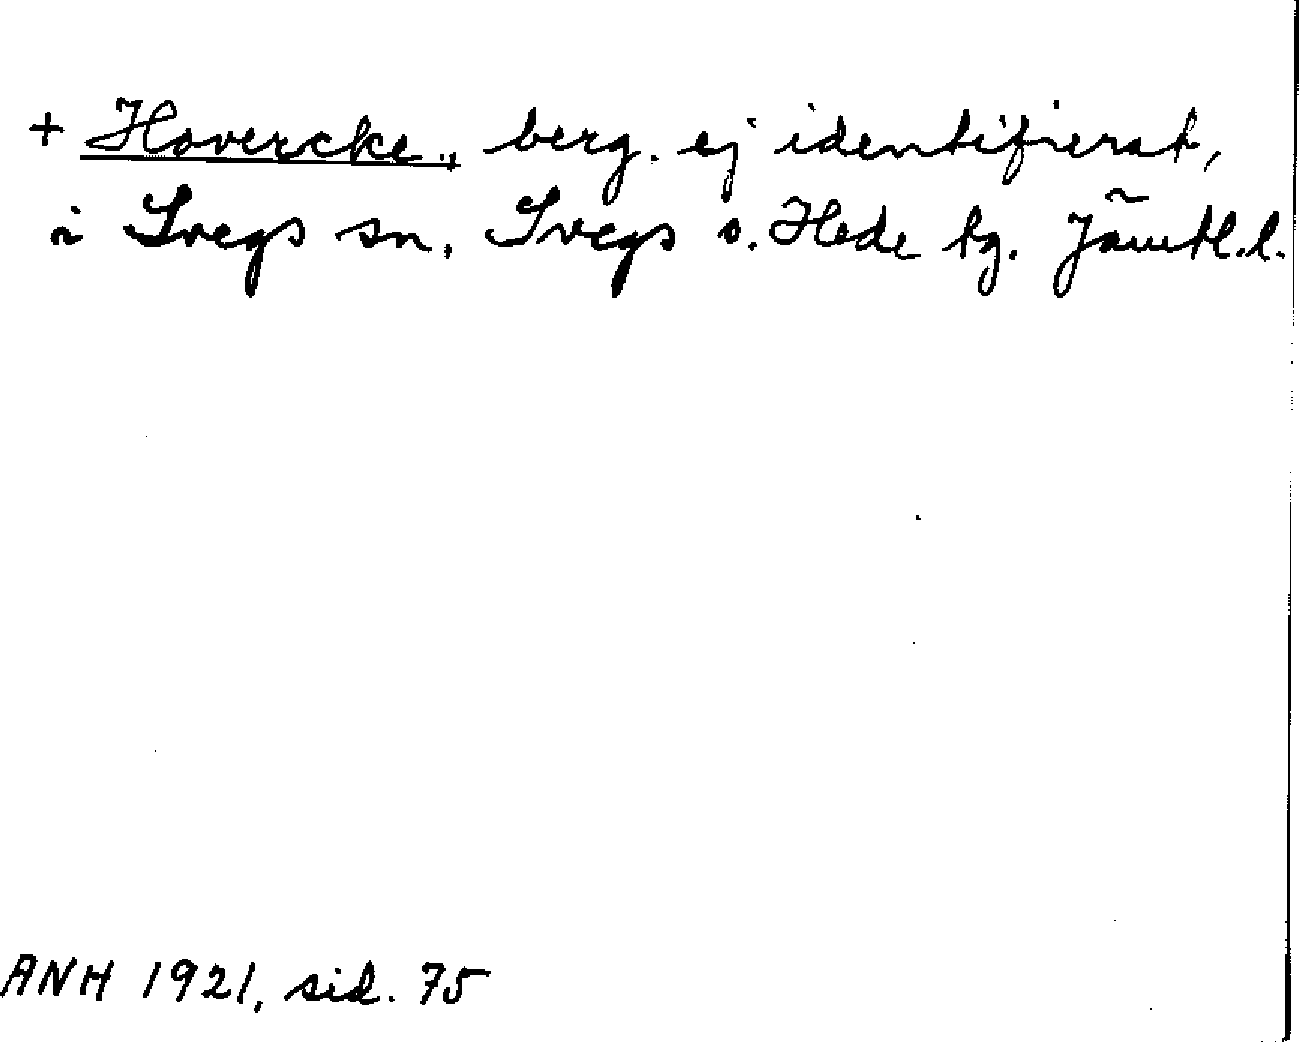 + Havercke, berg. ej identifierat,
i Svegs sn, Svegs o. Hede tg. Jämtl.l.
ANH 1921, sid. 75